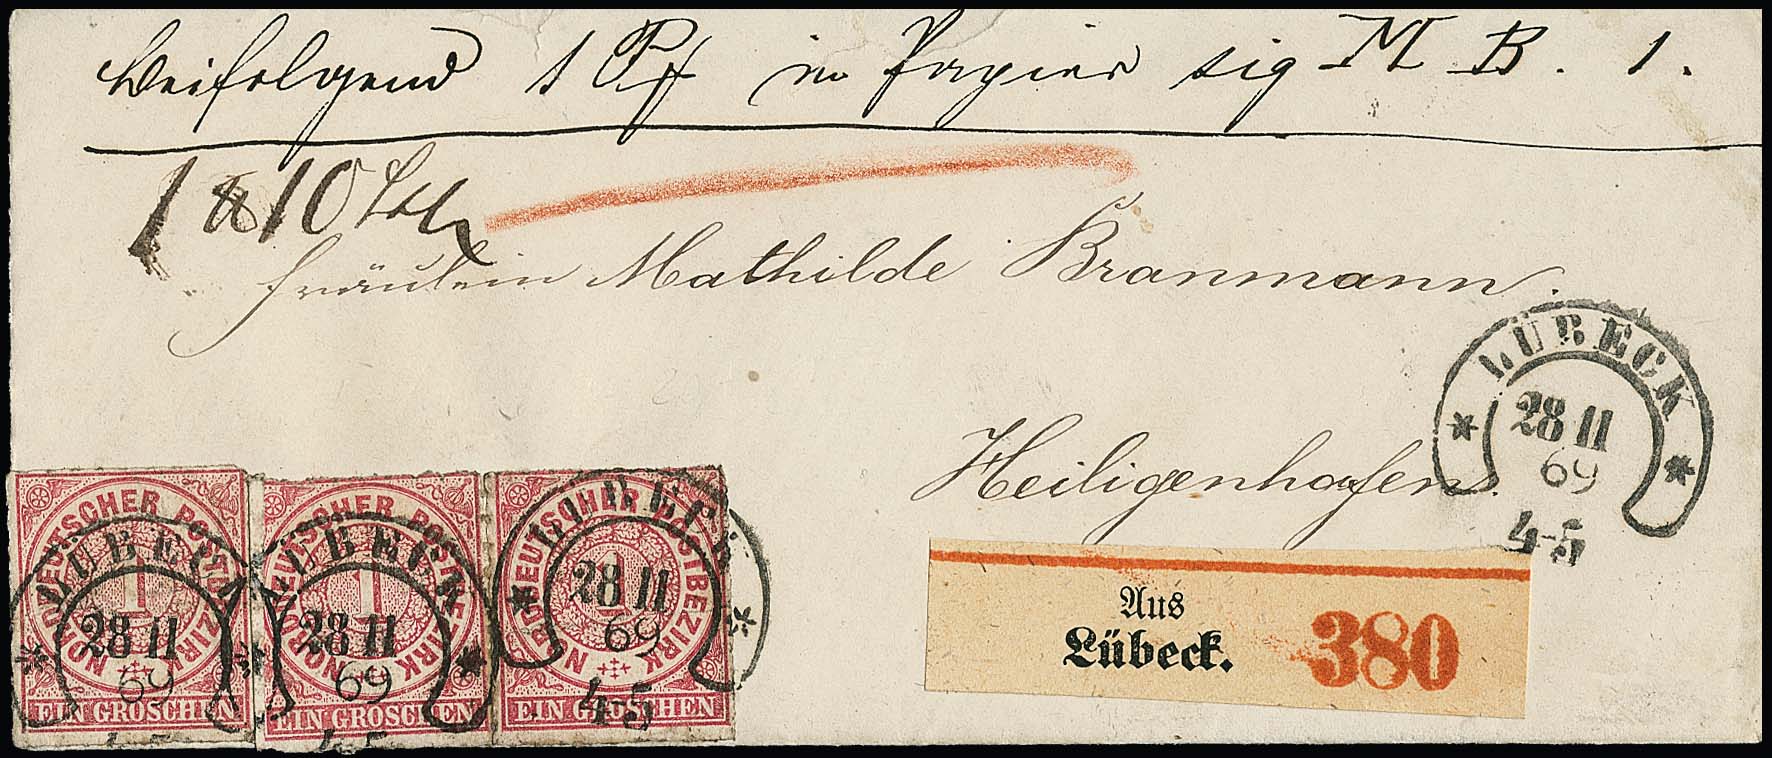 Beifolgend 1 Pf in Papier sig M B. 1.
1 ℔ 10 Lth
Fräulein Mathilde Branmann.
Heiligenhafen.
LÜBECK
28 11
69
4-5
NORDDEUTSCHER POSTBEZIRK
1
EIN GROSCHEN
LÜBECK
28 11
69
4-5
NORDDEUTSCHER POSTBEZIRK
1
EIN GROSCHEN
LÜBECK
28 11
69
4-5
NORDDEUTSCHER POSTBEZIRK
1
EIN GROSCHEN
LÜBECK
28 11
69
4-5
Aus
Lübeck.
380